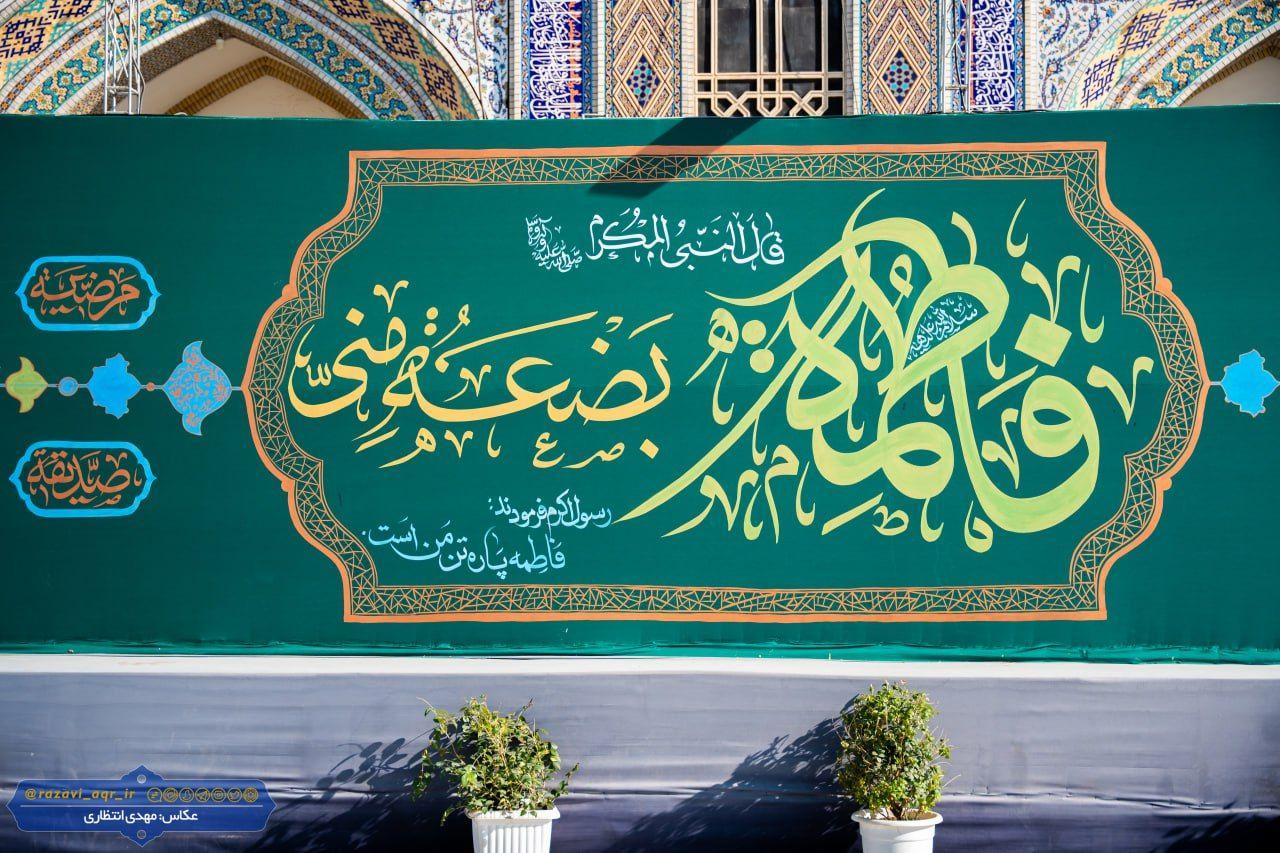 قال النبی المکرم
صلی الله علیه وآله وسلم
فاطمة
سلام الله علیها
بضعة منی
رسول اکرم فرمودند:
فاطمه پاره تن من است.
مرضیة
صدیقة
@razavi_aqr_ir
عکاس: مهدی انتظاری